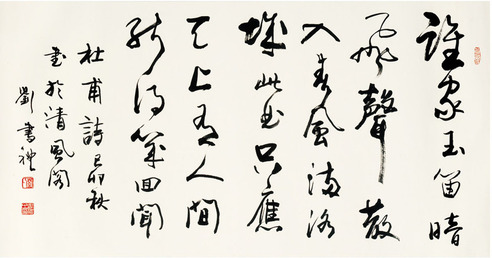 誰家玉笛暗
飛聲散
入春風滿洛
城此曲只應
天上有人間
能得幾回聞
杜甫詩己卯秋
書於清風閣
劉書